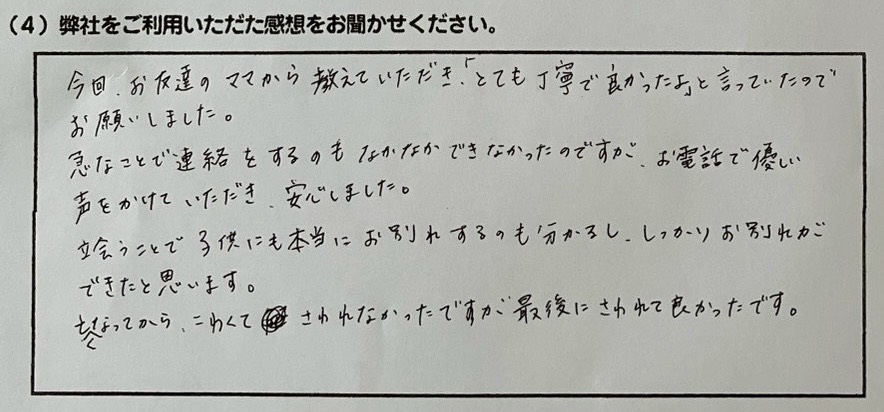 (4) 弊社をご利用いただた感想をお聞かせください。
今回、お友達のママから教えていただき、「とても丁寧で良かったよ」と言っていたので
お願いしました。
急なことで連絡をするのもなかなかできなかったのですが、お電話で優しい
声をかけていただき、安心しました。
立会うことで子供にも本当にお別れするのも分かるし、しっかりお別れが
できたと思います。
亡くなってから、こわくてさわれなかったですが最後にさわれて良かったです。